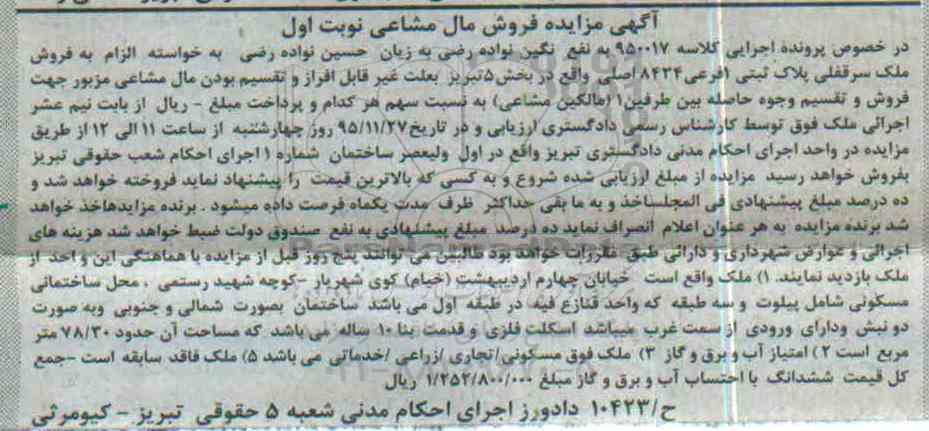 آگهی مزایده فروش مال مشاعی نوبت اول
در خصوص پرونده اجرایی کلاسه ۹۵۰۰۱۷ به نفع نگین نواده رضی به زیان حسین نواده رضی به خواسته الزام به فروش
ملک سرقفلی پلاک ثبتی ۱فرعی ۸۴۳۴ اصلی واقع در بخش ۵ تبریز بعلت غیر قابل افراز و تقسیم بودن مال مشاعی مزبور جهت
فروش و تقسیم وجوه حاصله بین طرفین۱ (مالکین مشاعی) به نسبت سهم هر کدام و پرداخت مبلغ - ریال از بابت نیم عشر
اجرائی ملک فوق توسط کارشناس رسمی دادگستری ارزیابی و در تاریخ ۹۵/۱۱/۲۷ روز چهارشنبه از ساعت ۱۱ الی ۱۲ از طریق
مزایده در واحد اجرای احکام مدنی دادگستری تبریز واقع در اول ولیعصر ساختمان شماره ۱ اجرای احکام شعب حقوقی تبریز
بفروش خواهد رسید مزایده از مبلغ ارزیابی شده شروع و به کسی که بالاترین قیمت را پیشنهاد نماید فروخته خواهد شد و
ده درصد مبلغ پیشنهادی فی المجلساخذ و به ما بقی حداکثر ظرف مدت یکماه فرصت داده میشود . برنده مزایدهاخذ خواهد
شد برنده مزایده به هر عنوان اعلام انصراف نماید ده درصد مبلغ پیشنهادی به نفع صندوق دولت ضبط خواهد شد هزینه های
اجرائی و عوارض شهرداری و دارائی طبق مقررات خواهد بود طالبین می توانند پنج روز قبل از مزایده با هماهنگی این واحد از
ملک بازدید نمایند. ۱) ملک واقع است خیابان چهارم اردیبهشت (خیام) کوی شهریار -کوچه شهید رستمی . محل ساختمانی
مسکونی شامل پیلوت و سه طبقه که واحد قنازع فیه در طبقه اول می باشد ساختمان بصورت شمالی و جنوبی وبه صورت
دو نبش ودارای ورودی از سمت غرب میباشد اسکلت فلزی و قدمت بنا ۱۰ ساله می باشد که مساحت آن حدود ۷۸/۳۰ متر
مربع است ۲) امتیاز آب و برق و گاز ۳) ملک فوق مسکونی/تجاری/زراعی/خدماتی می باشد ۵) ملک فاقد سابقه است -جمع
کل قیمت ششدانگ با احتساب آب و برق و گاز مبلغ ۱/۲۵۲/۸۰۰/۰۰۰ ریال
ح/۱۰۴۲۳ دادورز اجرای احکام مدنی شعبه ۵ حقوقی تبریز - کیومرثی
ParsNamadData